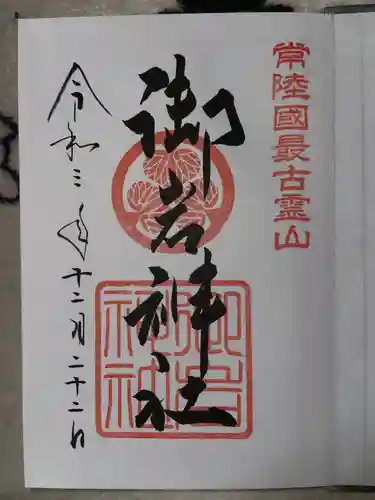 常陸國最古霊山
御岩神社
御岩神社
令和三年十二月二十二日